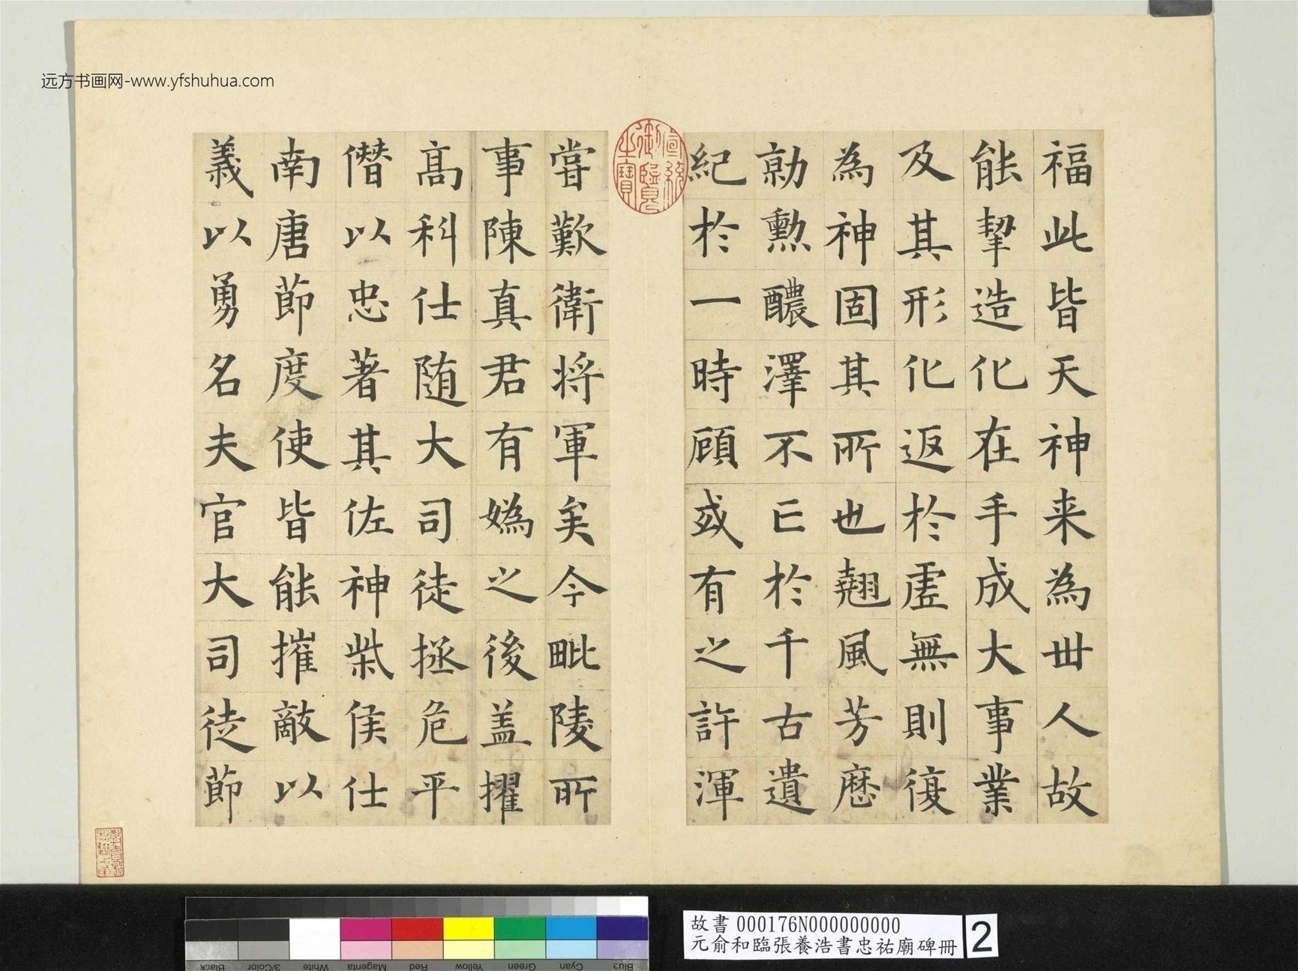 远方书画网-www.yfshuhua.com
福此皆天神来為世人故
能挈造化在手成大事業
及其形化返於虚無則復
為神固其所也翘風芳歷
勍勲醲澤不已於千古遺
紀於一時顾或有之許渾
甞歎衛将軍矣今毗陵所
事陳真君有媯之後盖擢
髙科仕随大司徒拯危平
僭以忠著其佐神柴侯仕
南唐節度使皆能摧敵以
義以勇名夫官大司徒節
宣統御覽之寶
故書 000176N000000000
元俞和臨張養浩書忠祐廟碑冊
2
Black
3/Color
White
Magenta
Red
Yellow
Green
Cyan
Blue